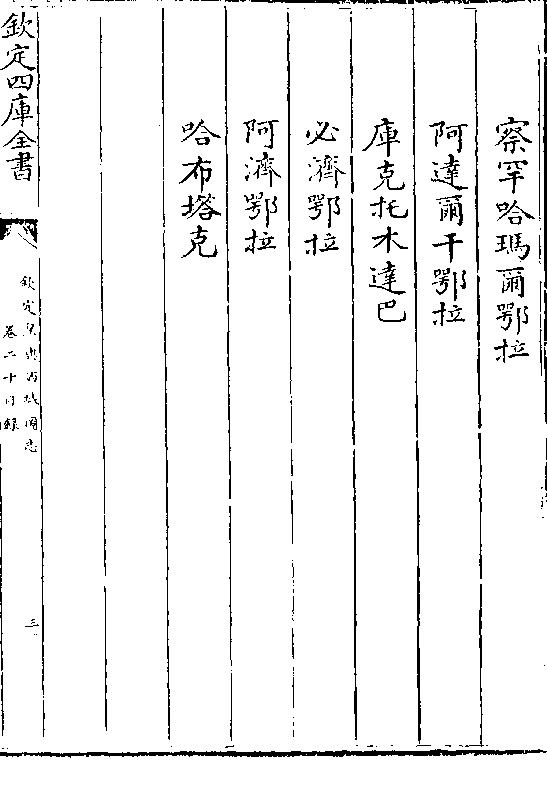 察罕哈瑪爾鄂拉
阿達爾干鄂拉
庫克托木達巴
必濟鄂拉
阿濟鄂拉
哈布塔克
欽定四庫全書
欽定皇輿西域圖志
卷二十目錄
三